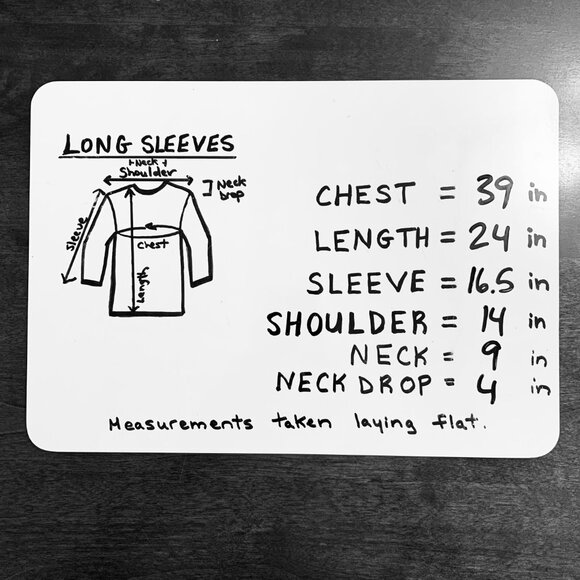 LONG SLEEVES
Neck
Shoulder
Neck
Drop
Sleeve
Chest
Length
CHEST = 39 in
LENGTH = 24 in
SLEEVE = 16.5 in
SHOULDER = 14 in
NECK = 9 in
NECK DROP = 4 in
Measurements taken laying flat.